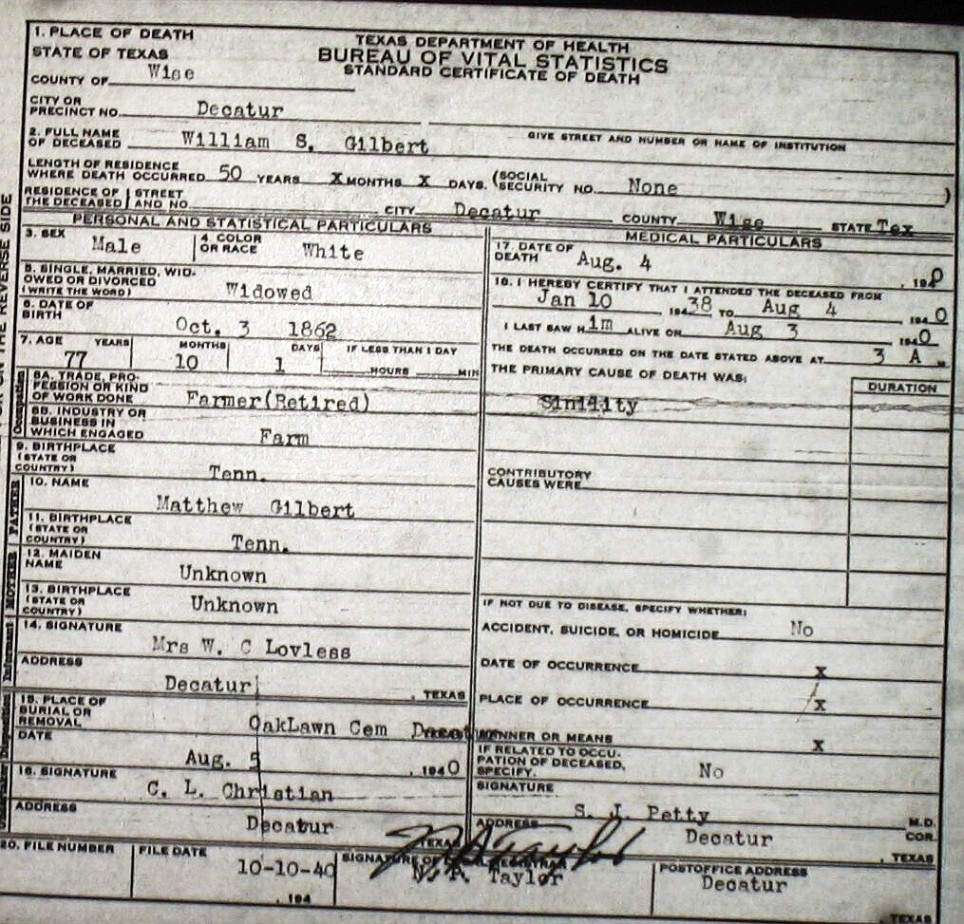 1. PLACE OF DEATH
STATE OF TEXAS
COUNTY OF Wise
TEXAS DEPARTMENT OF HEALTH
BUREAU OF VITAL STATISTICS
STANDARD CERTIFICATE OF DEATH
CITY OR
PRECINCT NO. Decatur
GIVE STREET AND NUMBER OR NAME OF INSTITUTION
2. FULL NAME
OF DECEASED William S. Gilbert
LENGTH OF RESIDENCE
WHERE DEATH OCCURRED 50 YEARS X MONTHS X DAYS. (SOCIAL
SECURITY NO. None )
RESIDENCE OF STREET
THE DECEASED AND NO. CITY Decatur COUNTY Wise STATE Tex
PERSONAL AND STATISTICAL PARTICULARS
3. SEX Male 4. COLOR
OR RACE White
5. SINGLE, MARRIED, WID-
OWED OR DIVORCED
(WRITE THE WORD) Widowed
6. DATE OF
BIRTH Oct. 3 1862
7. AGE YEARS MONTHS DAYS IF LESS THAN 1 DAY
77 10 1 HOURS MIN
Occupation
8A. TRADE, PRO-
FESSION OR KIND
OF WORK DONE Farmer(Retired)
8B. INDUSTRY OR
BUSINESS IN
WHICH ENGAGED Farm
9. BIRTHPLACE
(STATE OR
COUNTRY) Tenn.
FATHER
10. NAME
Matthew Gilbert
11. BIRTHPLACE
(STATE OR
COUNTRY) Tenn.
MOTHER
12. MAIDEN
NAME Unknown
13. BIRTHPLACE
(STATE OR
COUNTRY) Unknown
Informant
14. SIGNATURE
Mrs W. C Lovless
ADDRESS
Decatur , TEXAS
15. PLACE OF
BURIAL OR
REMOVAL OakLawn Cem Decatur
DATE
Aug. 5 , 1940
16. SIGNATURE
C. L. Christian
ADDRESS
Decatur
TEXAS
MEDICAL PARTICULARS
17. DATE OF
DEATH Aug. 4 , 1940
18. I HEREBY CERTIFY THAT I ATTENDED THE DECEASED FROM
Jan 10 , 19438 TO Aug 4 , 1940
I LAST SAW H im ALIVE ON Aug 3 1940
THE DEATH OCCURRED ON THE DATE STATED ABOVE AT 3 A M.
THE PRIMARY CAUSE OF DEATH WAS:
DURATION
Sinility
CONTRIBUTORY
CAUSES WERE
IF NOT DUE TO DISEASE, SPECIFY WHETHER:
ACCIDENT, SUICIDE, OR HOMICIDE No
DATE OF OCCURRENCE X
PLACE OF OCCURRENCE X
MANNER OR MEANS X
IF RELATED TO OCCU-
PATION OF DECEASED,
SPECIFY. No
SIGNATURE
S. J. Petty M.D.
COR.
ADDRESS Decatur , TEXAS
20. FILE NUMBER
FILE DATE
10-10-40
, 194
SIGNATURE OF LOCAL REGISTRAR
Taylor
POSTOFFICE ADDRESS
Decatur
TEXAS
ON THE REVERSE SIDE